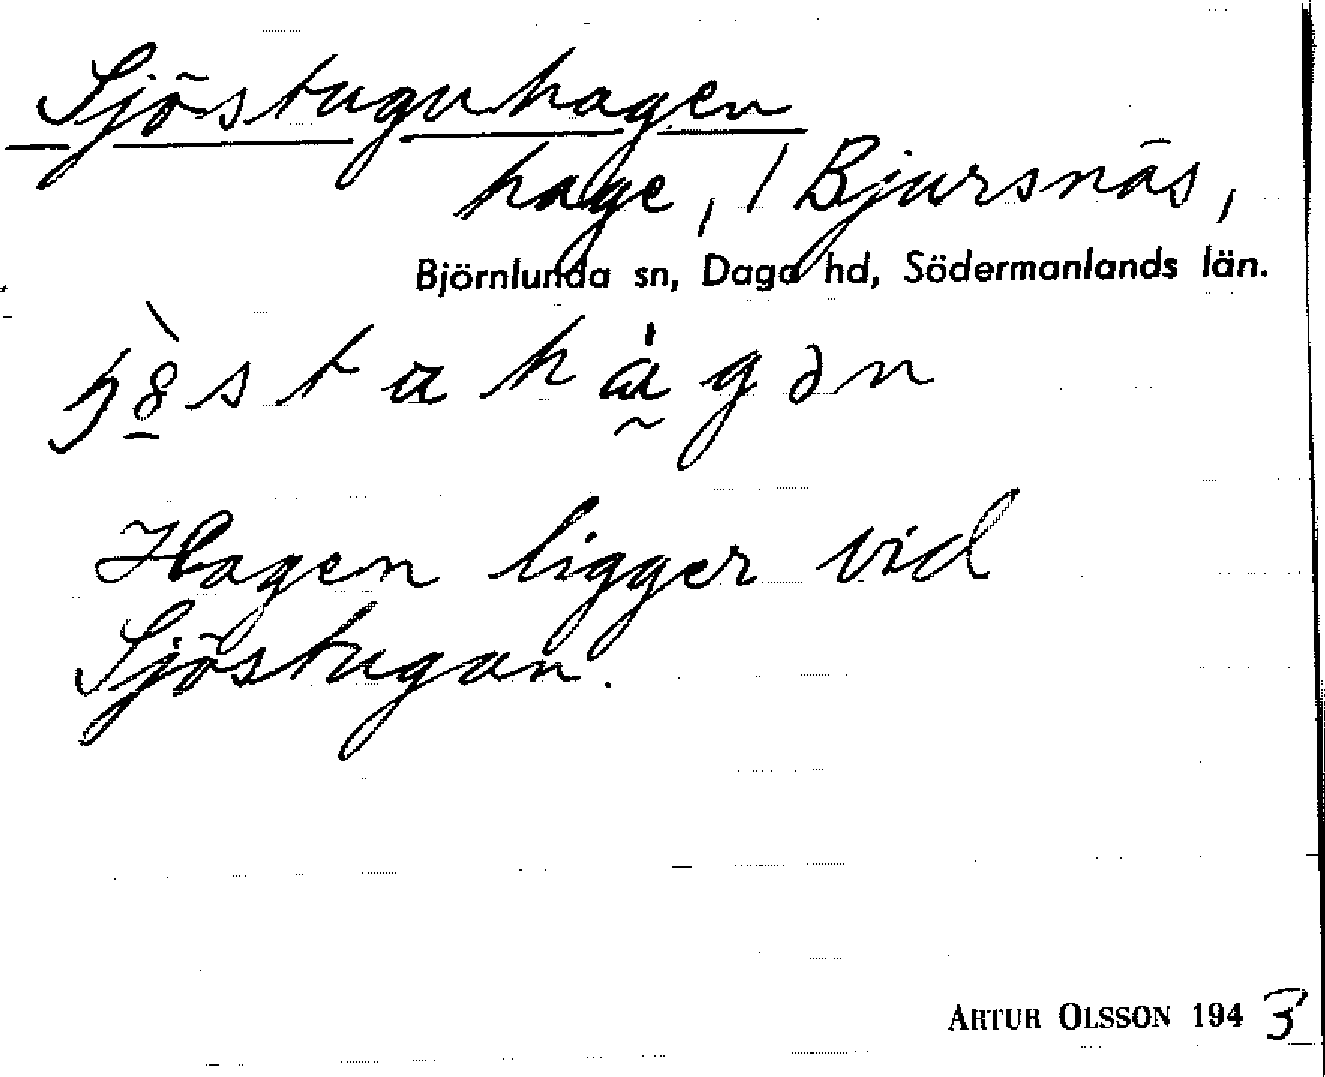 Sjöstuguhagen
hage, 1 Bjursnäs,
Björnlunda sn, Daga hd, Södermanlands län.
Hagen ligger vid
Sjöstugan.
ARTUR OLSSON 1943